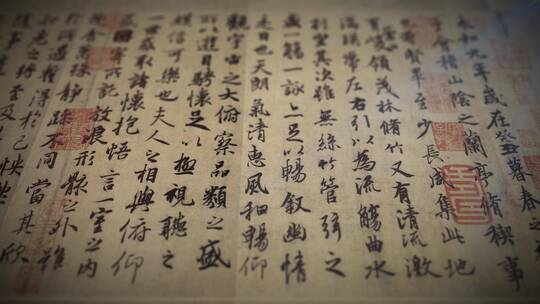 永和九年歲在癸丑暮春之
會稽山陰之蘭亭脩稧事
也羣賢畢至少長咸集此地
有崇山峻領茂林脩竹又有清流激
湍暎帶左右引以為流觴曲水
列坐其次雖無絲竹管弦之
盛一觴一詠亦足以暢敘幽情
是日也天朗氣清惠風和暢仰
觀宇宙之大俯察品類之盛
所以遊目騁懷足以極視聽之
娛信可樂也夫人之相與俯仰
一世或取諸懷抱悟言一室之內
因寄所託放浪形骸之外雖
趣舍萬殊靜躁不同當其欣
於所遇蹔得於己怏
知老之將至及
隨事遷